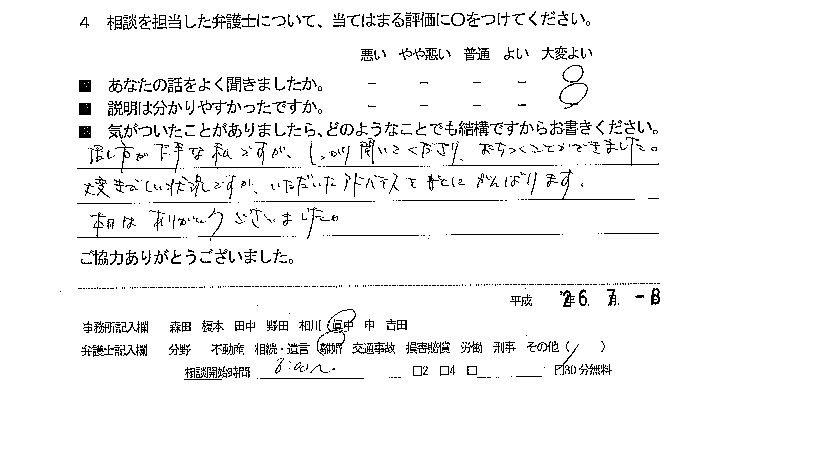 4 相談を担当した弁護士について、当てはまる評価に〇をつけてください。
悪い やや悪い 普通 よい 大変よい
■ あなたの話をよく聞きましたか。 － － － －
■ 説明は分かりやすかったですか。 － － － －
■ 気がついたことがありましたら、どのようなことでも結構ですからお書きください。
話し方が下手な私ですが、しっかり聞いてくださり、おちつくことができました。
大変きびしい状況ですが、いただいたアドバイスをもとにがんばります。
本日はありがとうございました。
ご協力ありがとうございました。
平成 26. 7. -8
事務所記入欄 森田 榎本 田中 野田 相川 畠中 申 吉田
弁護士記入欄 分野 不動産 相続・遺言 離婚 交通事故 損害賠償 労働 刑事 その他（ ）
相談開始時間 8:00～ □2 □4 □ □30分無料